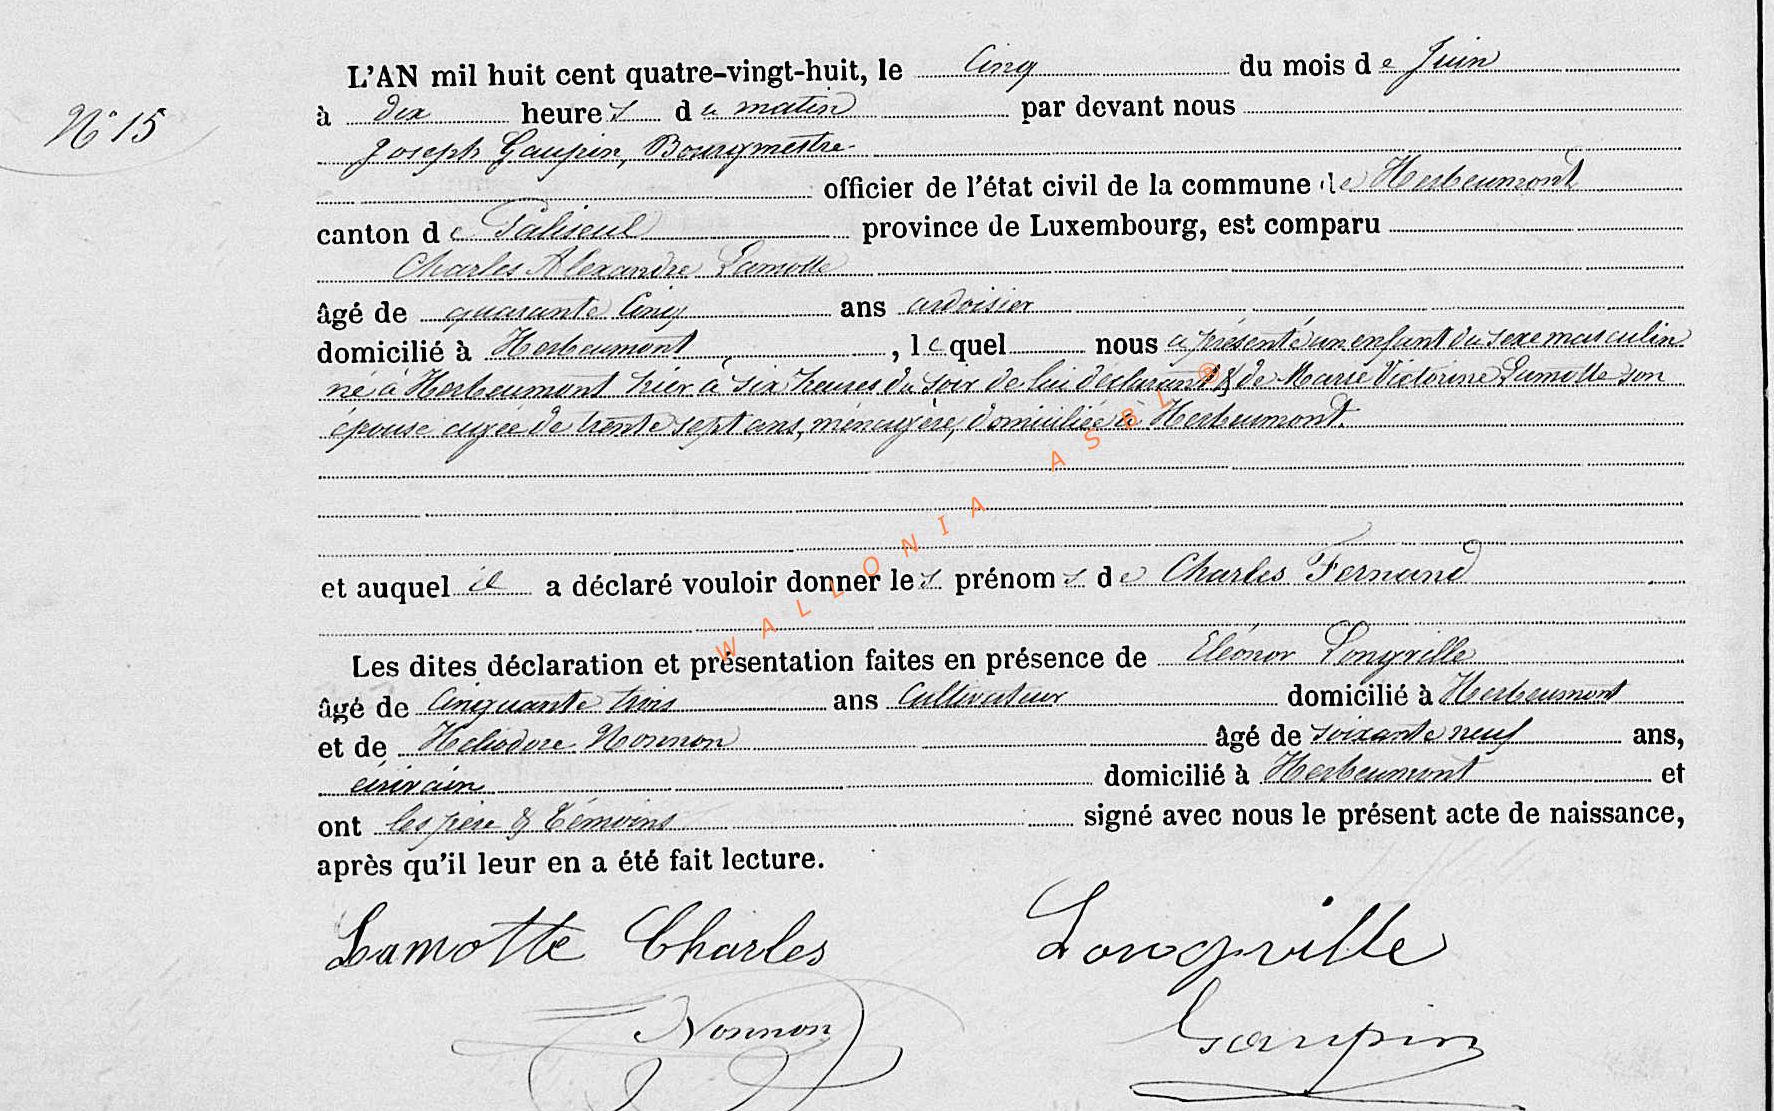 N° 15
L'AN mil huit cent quatre-vingt-huit, le Cinq du mois de Juin
à dix heures du matin par devant nous
Joseph Gaupin, Bourgmestre
officier de l'état civil de la commune de Herbeumont
canton de Paliseul province de Luxembourg, est comparu
Charles Alexandre Lamotte
âgé de quarante Cinq ans ardoisier
domicilié à Herbeumont, lequel nous a présenté un enfant du sexe masculin
né à Herbeumont hier à six heures du soir de lui déclarant & de Marie Victorine Lamotte son
épouse agée de trente sept ans, ménagère, domiciliée à Herbeumont.
et auquel il a déclaré vouloir donner les prénoms de Charles Fernand
Les dites déclaration et présentation faites en présence de Eléonor Longville
âgé de Cinquante trois ans Cultivateur domicilié à Herbeumont
et de Héliodore Nonnon âgé de soixante neuf ans,
écrivain domicilié à Herbeumont et
ont les père & témoins signé avec nous le présent acte de naissance,
après qu'il leur en a été fait lecture.
Lamotte Charles Longville
Nonnon Gaupin
WALLONIA ASBL ®